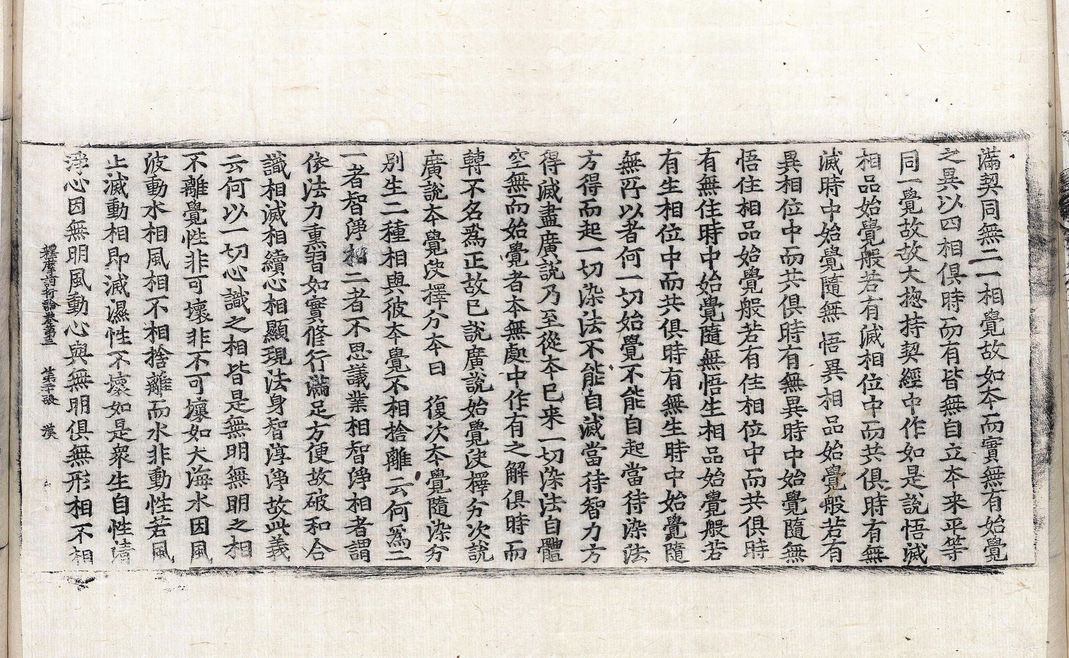 滿契同無二一相覺故如本而實無有始覺
之異以四相俱時而有皆無自立本来平等
同一覺故故大揔持契經中作如是說悟滅
相品始覺般若有滅相位中而共俱時有無
滅時中始覺隨無 悟異相品始覺般若有
異相位中而共俱時有無異時中始覺隨無
悟住相品始覺般若有住相位中而共俱時
有無住時中始覺隨無悟生相品始覺般若
有生相位中而共俱時有無生時中始覺隨
無所以者何一切始覺不能自起當待染法
方得而起一切染法不能自滅當待智力方
得滅盡廣說乃至從本已来一切染法自體
空無而始覺者本無處中作有之解俱時而
轉不名爲正故已說廣說始覺決擇分次說
廣說本覺決擇分本曰 復次本覺隨染分
別生二種相與彼本覺不相捨離云何爲二
一者智淨相二者不思議業相智淨相者謂
依法力熏習如實修行滿足方便故破和合
識相滅相續心相顯現法身智淳淨故此義
云何以一切心識之相皆是無明無明之相
不離覺性非可壞非不可壞如大海水因風
波動水相風相不相捨離而水非動性若風
止滅動相即滅濕性不壞如是衆生自性清
淨心因無明風動心與無明俱無形相不相
釋摩訶衍論卷第三 漢